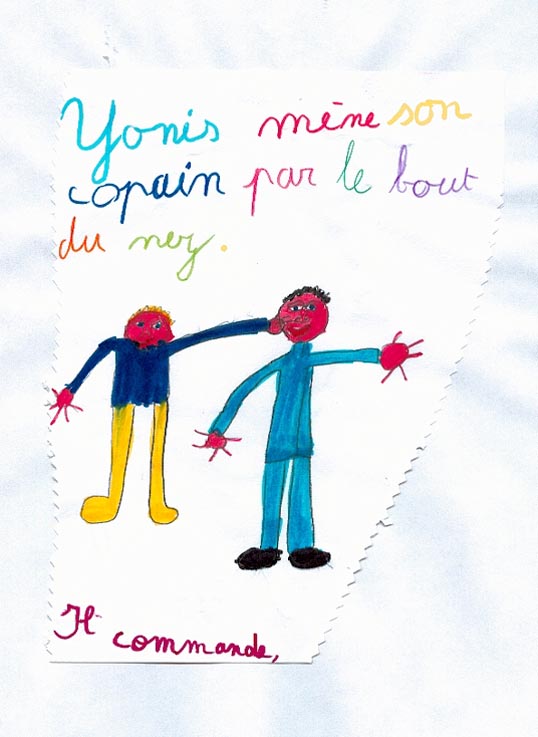 Yonis mène son
copain par le bout
du nez.
Il commande,